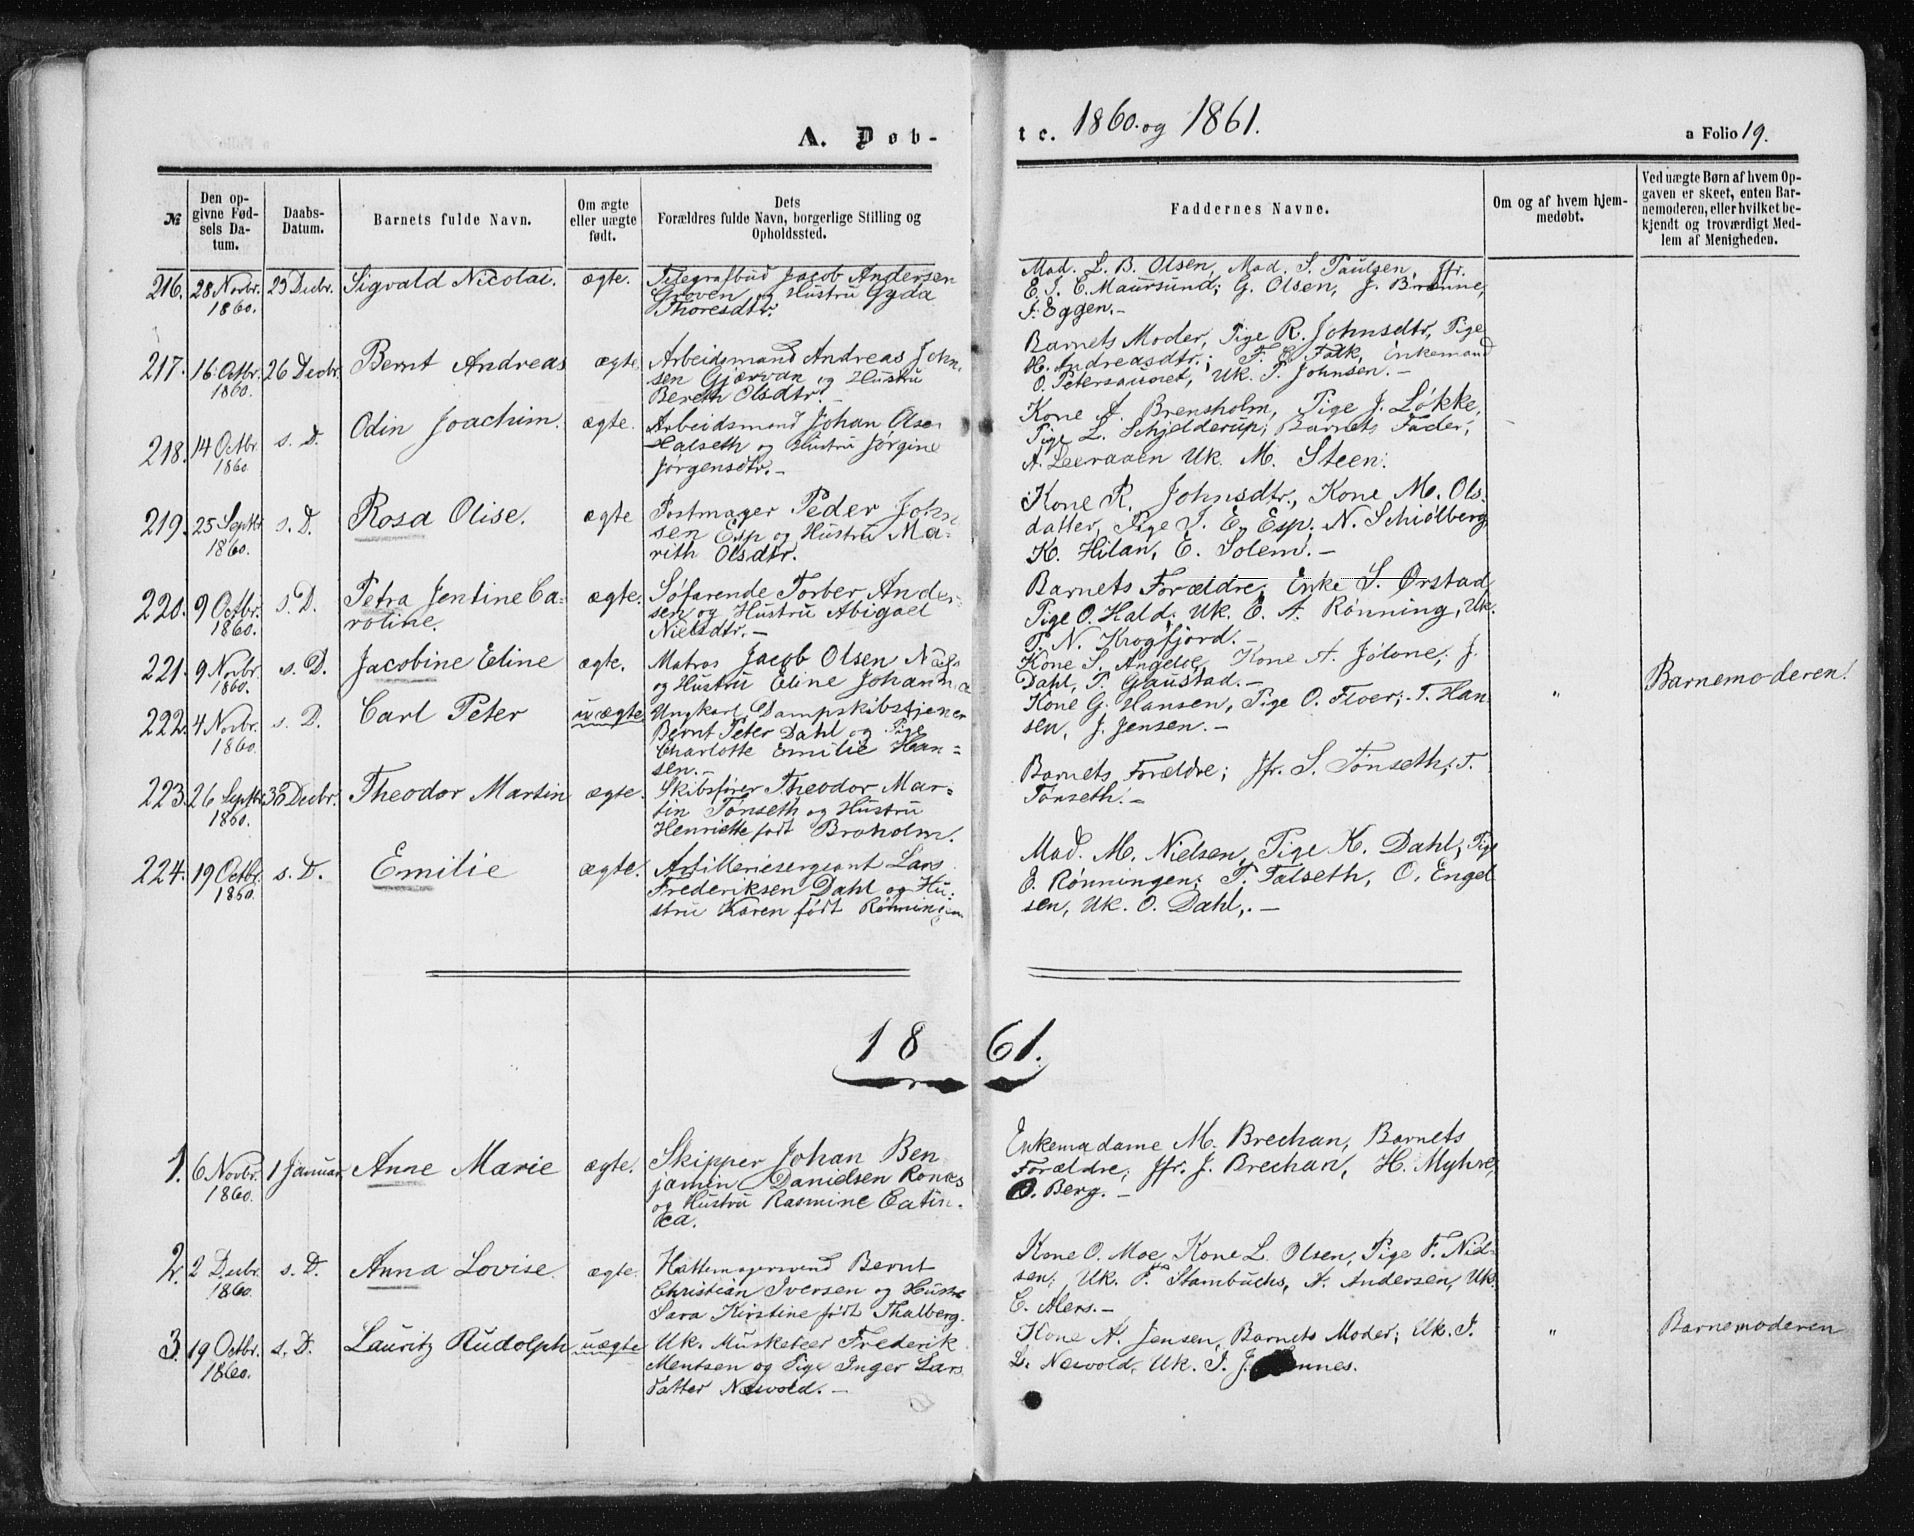 A. Døb-
te. 1860. og 1861.
a Folio 19.
№
Den op-
givne Fød-
sels Da-
tum.
Daabs-
Datum.
Barnets fulde Navn.
Om ægte
eller uægte
født.
Dets
Forældres fulde Navn, borgerlige Stilling og
Opholdssted.
Faddernes Navne.
Om og af hvem hjem-
medøbt.
Ved uægte Børn af hvem Op-
gaven er skeet, enten Bar-
nemoderen, eller hvilket be-
kjendt og troværdigt Med-
lem af Menigheden.
216. 28 Novbr. 25 Decbr. Sigvald Nicolai. ægte. Telegrafbud Jacob Andersen
1860. Groven og Hustru Gyda
Thoresdtr.
Mad. L. B. Olsen, Mad. S. Paulsen, Jfr.
E. J. C. Maursund; G. Olsen, J. Brønne,
J. Eggen.-
217. 16 Octbr. 26 Decbr. Bernt Andreas ægte. Arbeidsmand Andreas John-
1860. sen Gjærvan og Hustru
Bereth Olsdtr.-
Barnets Moder, Pige R. Johnsdtr, Pige
H. Andreasdtr.; F. E. Falk, Enkemand
O. Petersaunet, Uk. P. Johnsen.-
218. 14 Octbr. s. D. Odin Joachim. ægte. Arbeidsmand Johan Olsen
1860. Halseth og Hustru Jørgine
Jørgensdtr.-
Kone A. Brensholm, Pige J. Løkke,
Pige L. Schjelderup; Barnets Fader,
A. Leeraaen Uk. M. Steen.
219. 25 Septbr. s. D. Rosa Olise. ægte Postmager Peder John
1860. sen Esp og Hustru Ma-
rith Olsdtr.
Kone R. Johnsdtr., Kone M. Ols-
datter, Pige J. E. Esp; N. Schiølberg
K. Hilan, E. Solem.-
220. 9 Octbr. s. D. Petra Jentine Ca- ægte. Søfarende Torber Ander-
1860. roline. sen og Hustru Abigael
Nielsdtr.-
Barnets Forældre, Enke S. Ørstad
Pige O. Hald; Uk. E. A. Rønning, Uk.
T. N. Krogfjord.-
221. 9 Novbr. s. D. Jacobine Eline ægte. Matros Jacob Olsen Næss
1860. og Hustru Eline Johanna
Kone S. Angeloe, Kone A. Jølone; J.
Dahl, P. Gaustad.-
222. 4 Novbr. s. D. Carl Peter uægte Ungkarl Dampskibstjener
1860. Bernt Peter Dahl og Pige
Charlotte Emilie Han-
sen.-
Kone G. Hansen, Pige O. Floer; T. Han-
sen, J. Jensen.-
" Barnemoderen!
223. 26 Septbr. 30 Decbr. Theodor Martin ægte. Skibsfører Theodor Mar-
1860. tin Tønseth og Hustru
Henriette født Broholm.
Barnets Forældre; Jfr. S. Tønseth; T.
Tønseth.-
224. 19 Octbr. s. D. Emilie ægte. Artilleriesergeant Lars
1860. Frederiksen Dahl og Hu-
stru Karen født Rønningen
Mad. M. Nielsen, Pige K. Dahl, Pige
E. Rønningen; T. Falseth, O. Engel
sen, Uk. O. Dahl.-
1861.
1. 6 Novbr. 1 Januar. Anne Marie ægte. Skipper Johan Ben
1860. jamin Danielsen Rones
og Hustru Rasmine Catin-
ca.
Enkemadame M. Brechan, Barnets
Forældre; Jfr. J. Brechan, H. Myhre,
O. Berg.-
2. 2 Decbr. s. D. Anna Lovise. ægte. Hattemagersvend Bernt
1860. Christian Iversen og Hustru
Sara Kirstine født Thalberg.
Kone O. Moe, Kone L. Olsen, Pige F. Niel-
sen; Uk. P. Stambuchs, A. Andersen, Uk.
C. Alers.-
3. 19 Octbr. s. D. Lauritz Rudolph uægte Uk. Musketeer Frederik
1860. Mentsen og Pige Inger Lars
datter Næsvold.-
Kone A. Jensen, Barnets Moder; Uk. J.
L. Næsvold, Uk. J. J.
" Barnemoderen